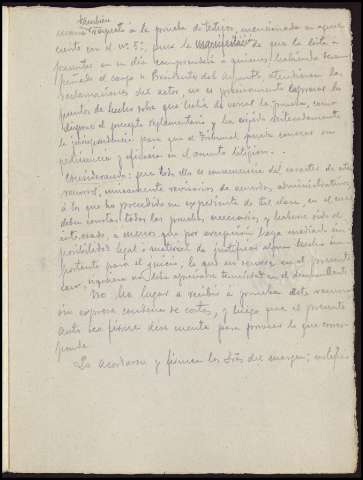 también
mismo respecto a la prueba de testigos, mencionada en aquel
escrito en el nº 5º, pues la manifestación de que la lista de
parientes en su día comprenderá a quienes habiendo desem-
peñado el cargo de Presidente del
reclamaciones del actor, no es precisamente expresar los
puntos de hecho sobre que había de versar la prueba, como
dispone el precepto reglamentario y ha exigido reiteradamente
la jurisprudencia para que el Tribunal pueda conocer su
pertinencia y eficacia en el asunto litigioso. -
Considerando: que todo ello es consecuencia del caracter de este
recurso, meramente revisorio de acuerdos administrativos
a los que ha precedido un expediente de tal clase, en el cual
deben constar todas las pruebas necesarias, y haberse oido al
interesado, a menos que por excepción haya mediado im-
posibilidad legal o material de justificar algun hecho im-
portante para el juicio, lo que no sucede en el presente
caso, siquiera no deba apreciarse temeridad en el demandante
No ha lugar a recibir a prueba este recurso
sin expresa condena de costas, y luego que el presente
auto sea firme dese cuenta para proveer lo que corres-
ponda.
Lo acordaron y firman los Sres del margen; certifico